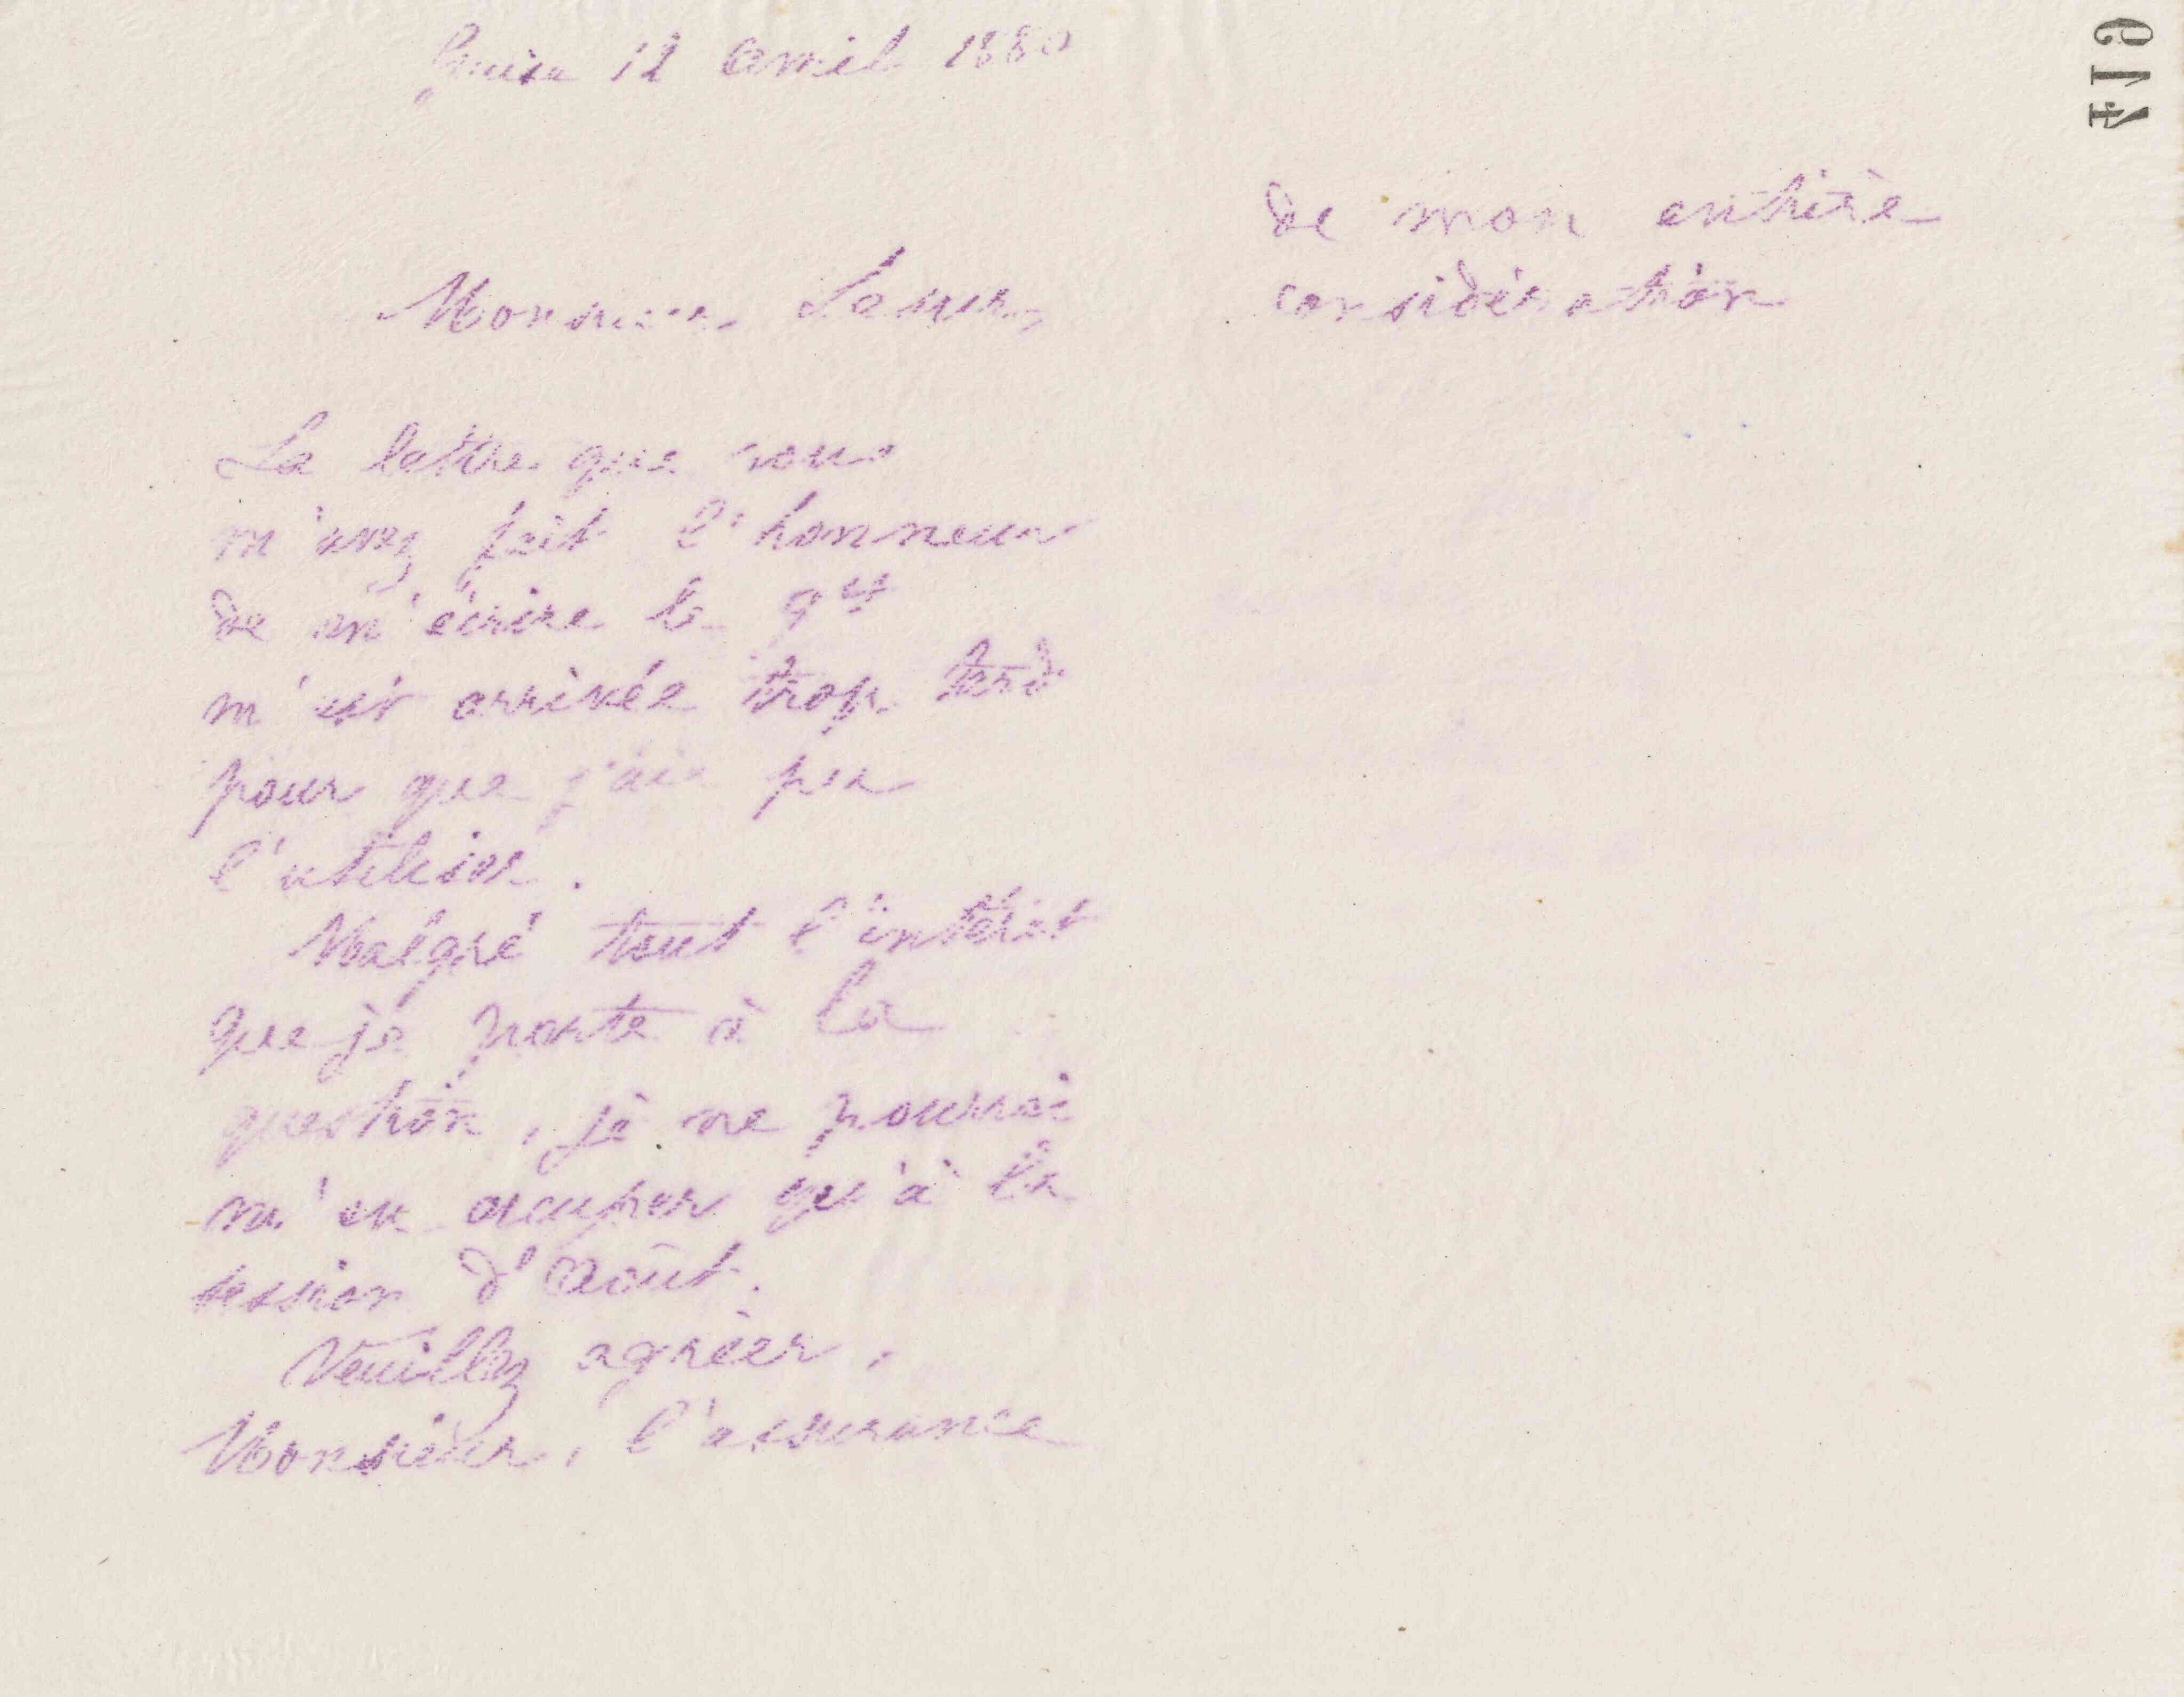 Guise 12 Avril 1880
Monsieur Lesur,
La lettre que vous
m'avez fait l'honneur
de m'écrire le 9 ct
m'est arrivée trop tard
pour que j'aie pu
l'utiliser.
Malgré tout l'intérêt
que je porte à la
question, je ne pourrai
m'en occuper qu'à la
session d'Août.
Veuillez agréer,
Monsieur, l'assurance
de mon entière
considération
419